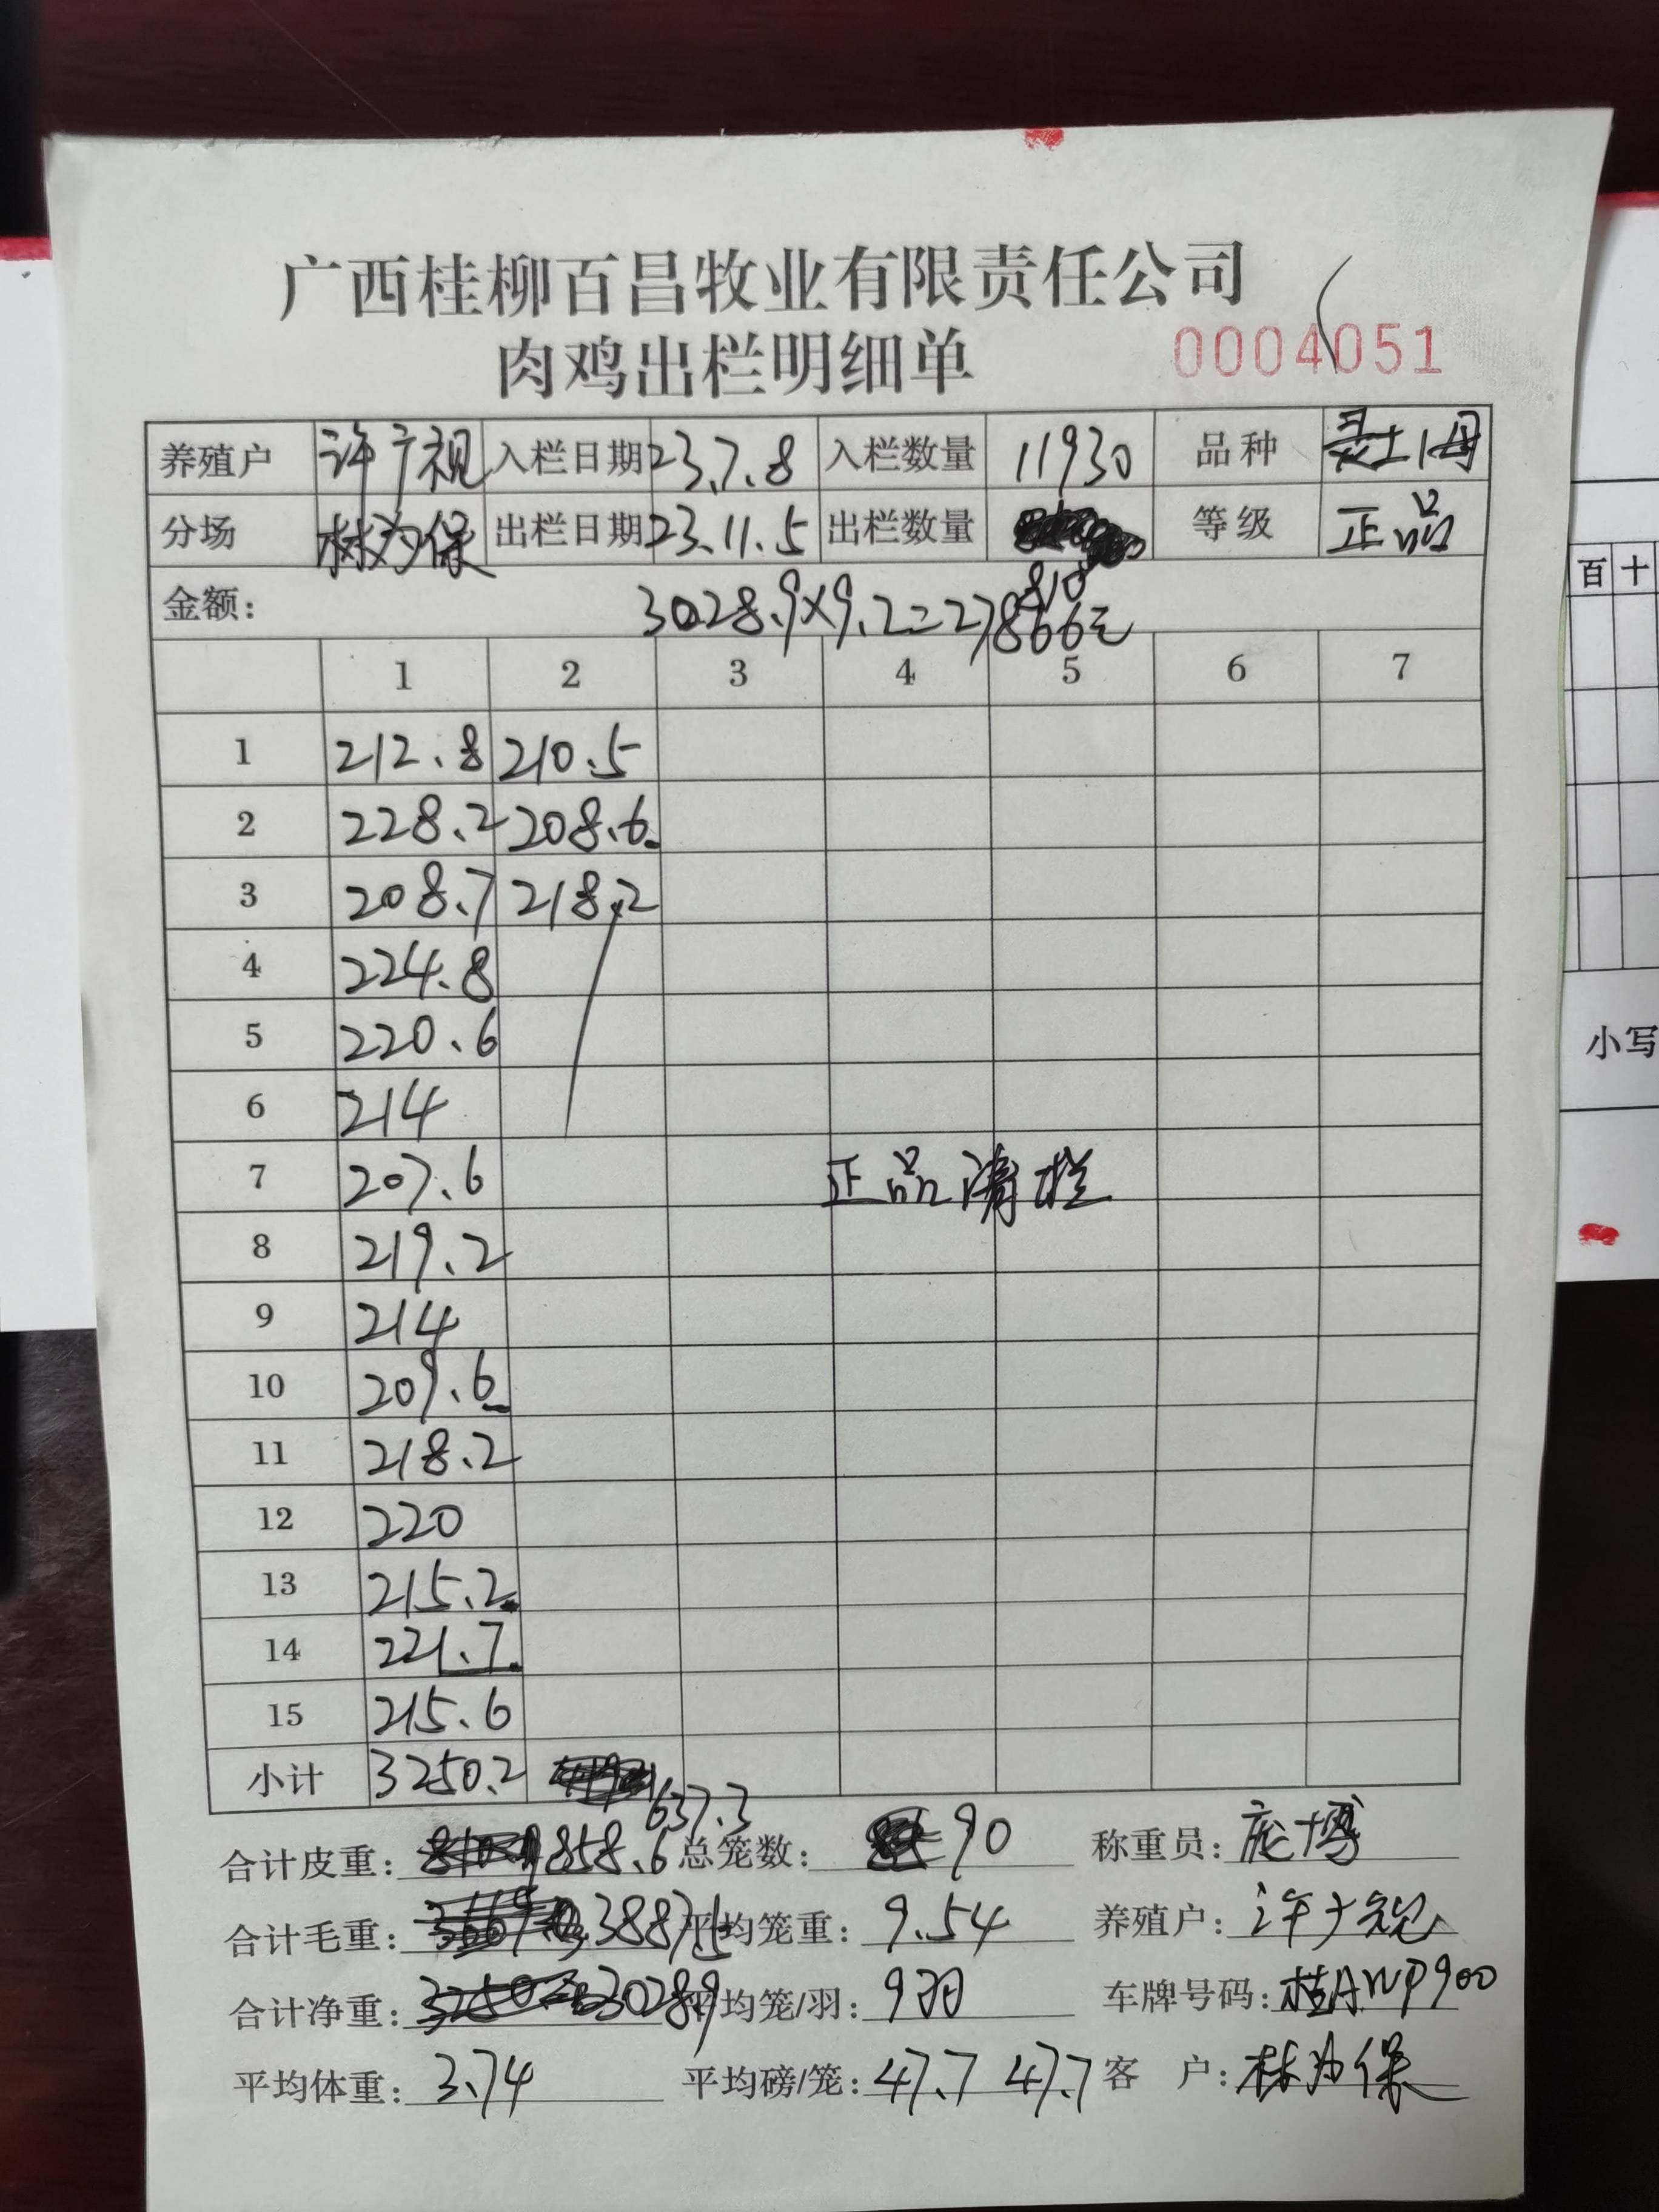 广西桂柳百昌牧业有限责任公司
肉鸡出栏明细单 0004051
养殖户 许广视 入栏日期 23.7.8 入栏数量 11930 品种 灵土1母
分场 林为保 出栏日期 23.11.5 出栏数量 810 等级 正品
金额: 3028.9×9.2=27866元
1 2 3 4 5 6 7
1 212.8 210.5
2 228.2 208.6
3 208.7 218.2
4 224.8
5 220.6
6 214
7 207.6 正品清栏
8 219.2
9 214
10 209.6
11 218.2
12 220
13 215.2
14 221.7
15 215.6
小计 3250.2 637.3
合计皮重: 858.6 总笼数: 90 称重员: 庞博
合计毛重: 3887.5 平均笼重: 9.54 养殖户: 许广视
合计净重: 3028.9 平均笼/羽: 9羽 车牌号码: 桂AWP900
平均体重: 3.74 平均磅/笼: 47.7 47.7 客 户: 林为保
百 十
小写